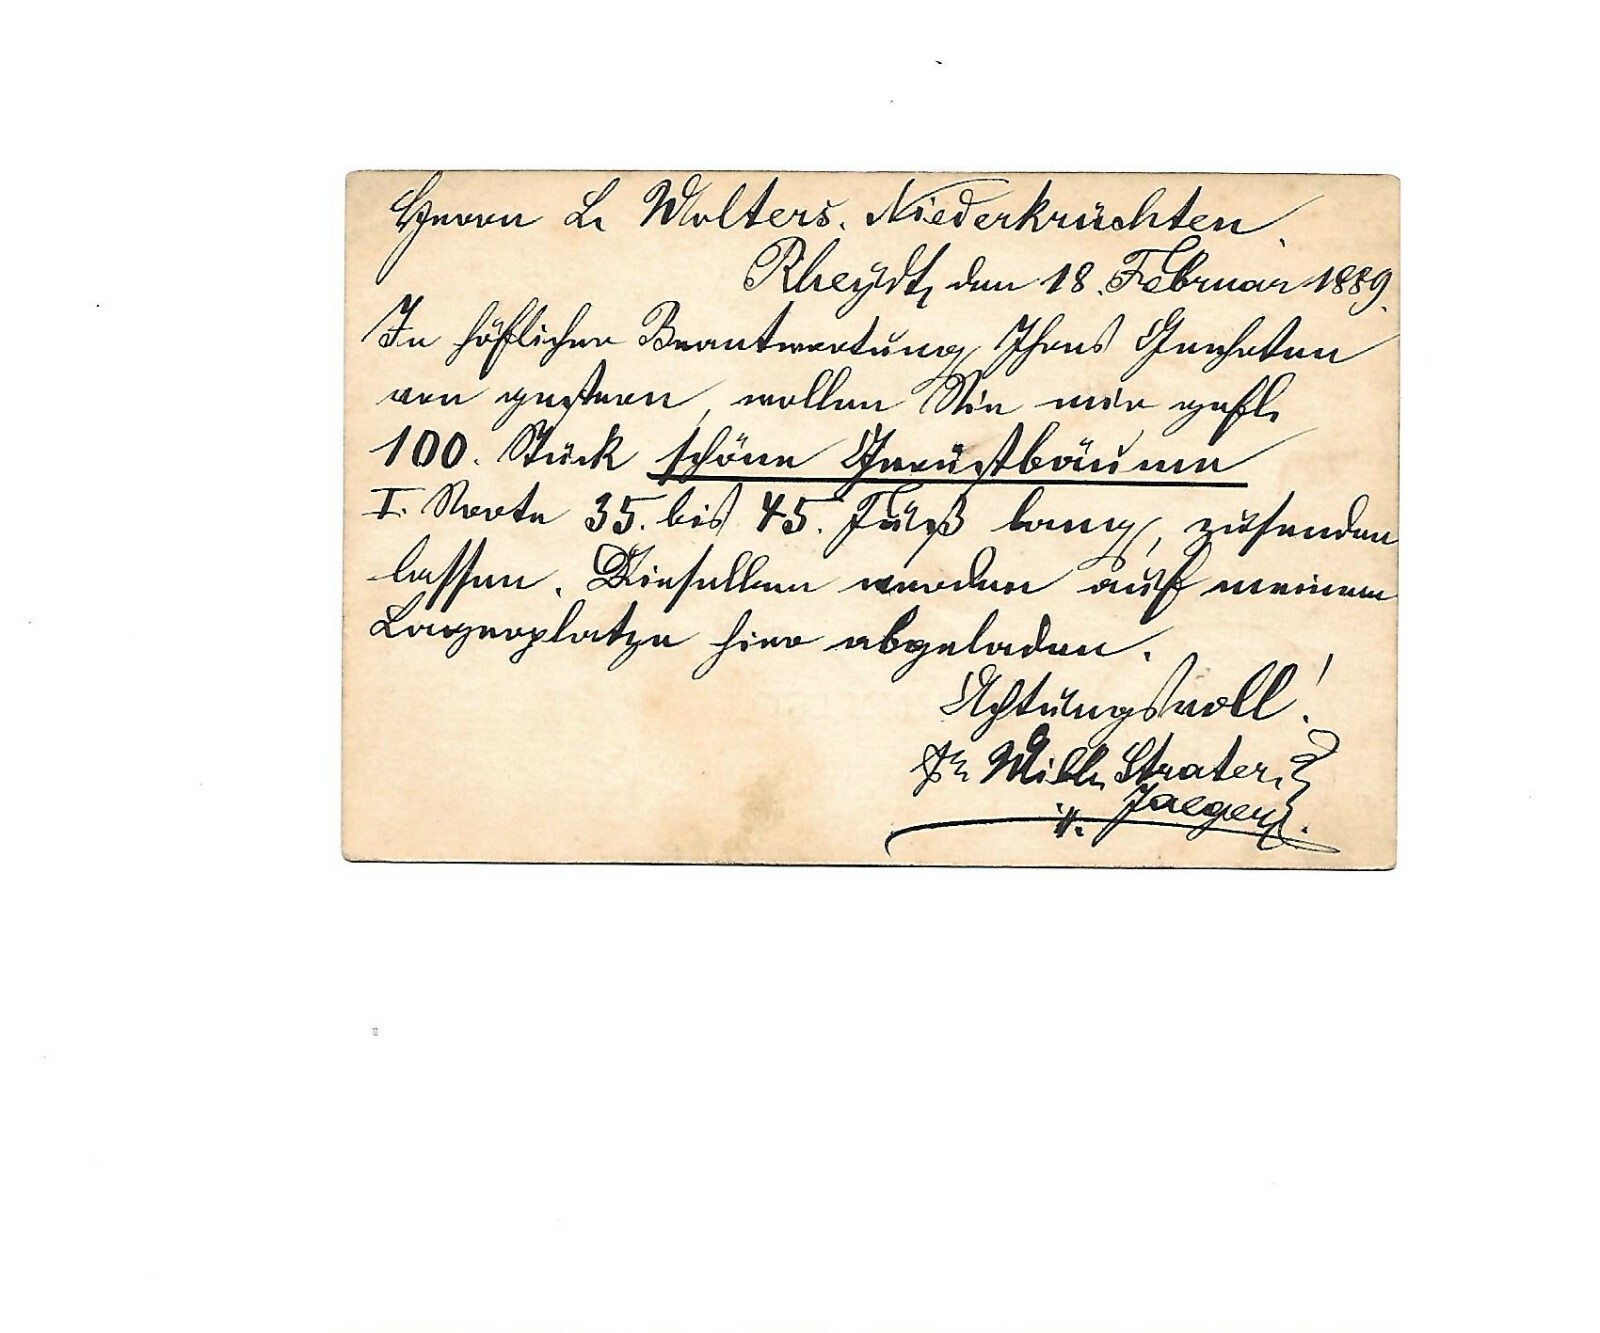 Herrn L. Wolters. Niederkrüchten.
Rheydt, den 18. Februar 1889.
In höflicher Beantwortung Ihres Geehrten
von gestern, wollen Sie mir gefl.
100. Stück schöne Gerüstbäume
I. Sorte 35. bis 45. Fuß lang, zusenden
lassen. Dieselben werden auf meinem
Lagerplatze hier abgeladen.
Achtungsvoll!
Wilh. Strater,
Jaeger.